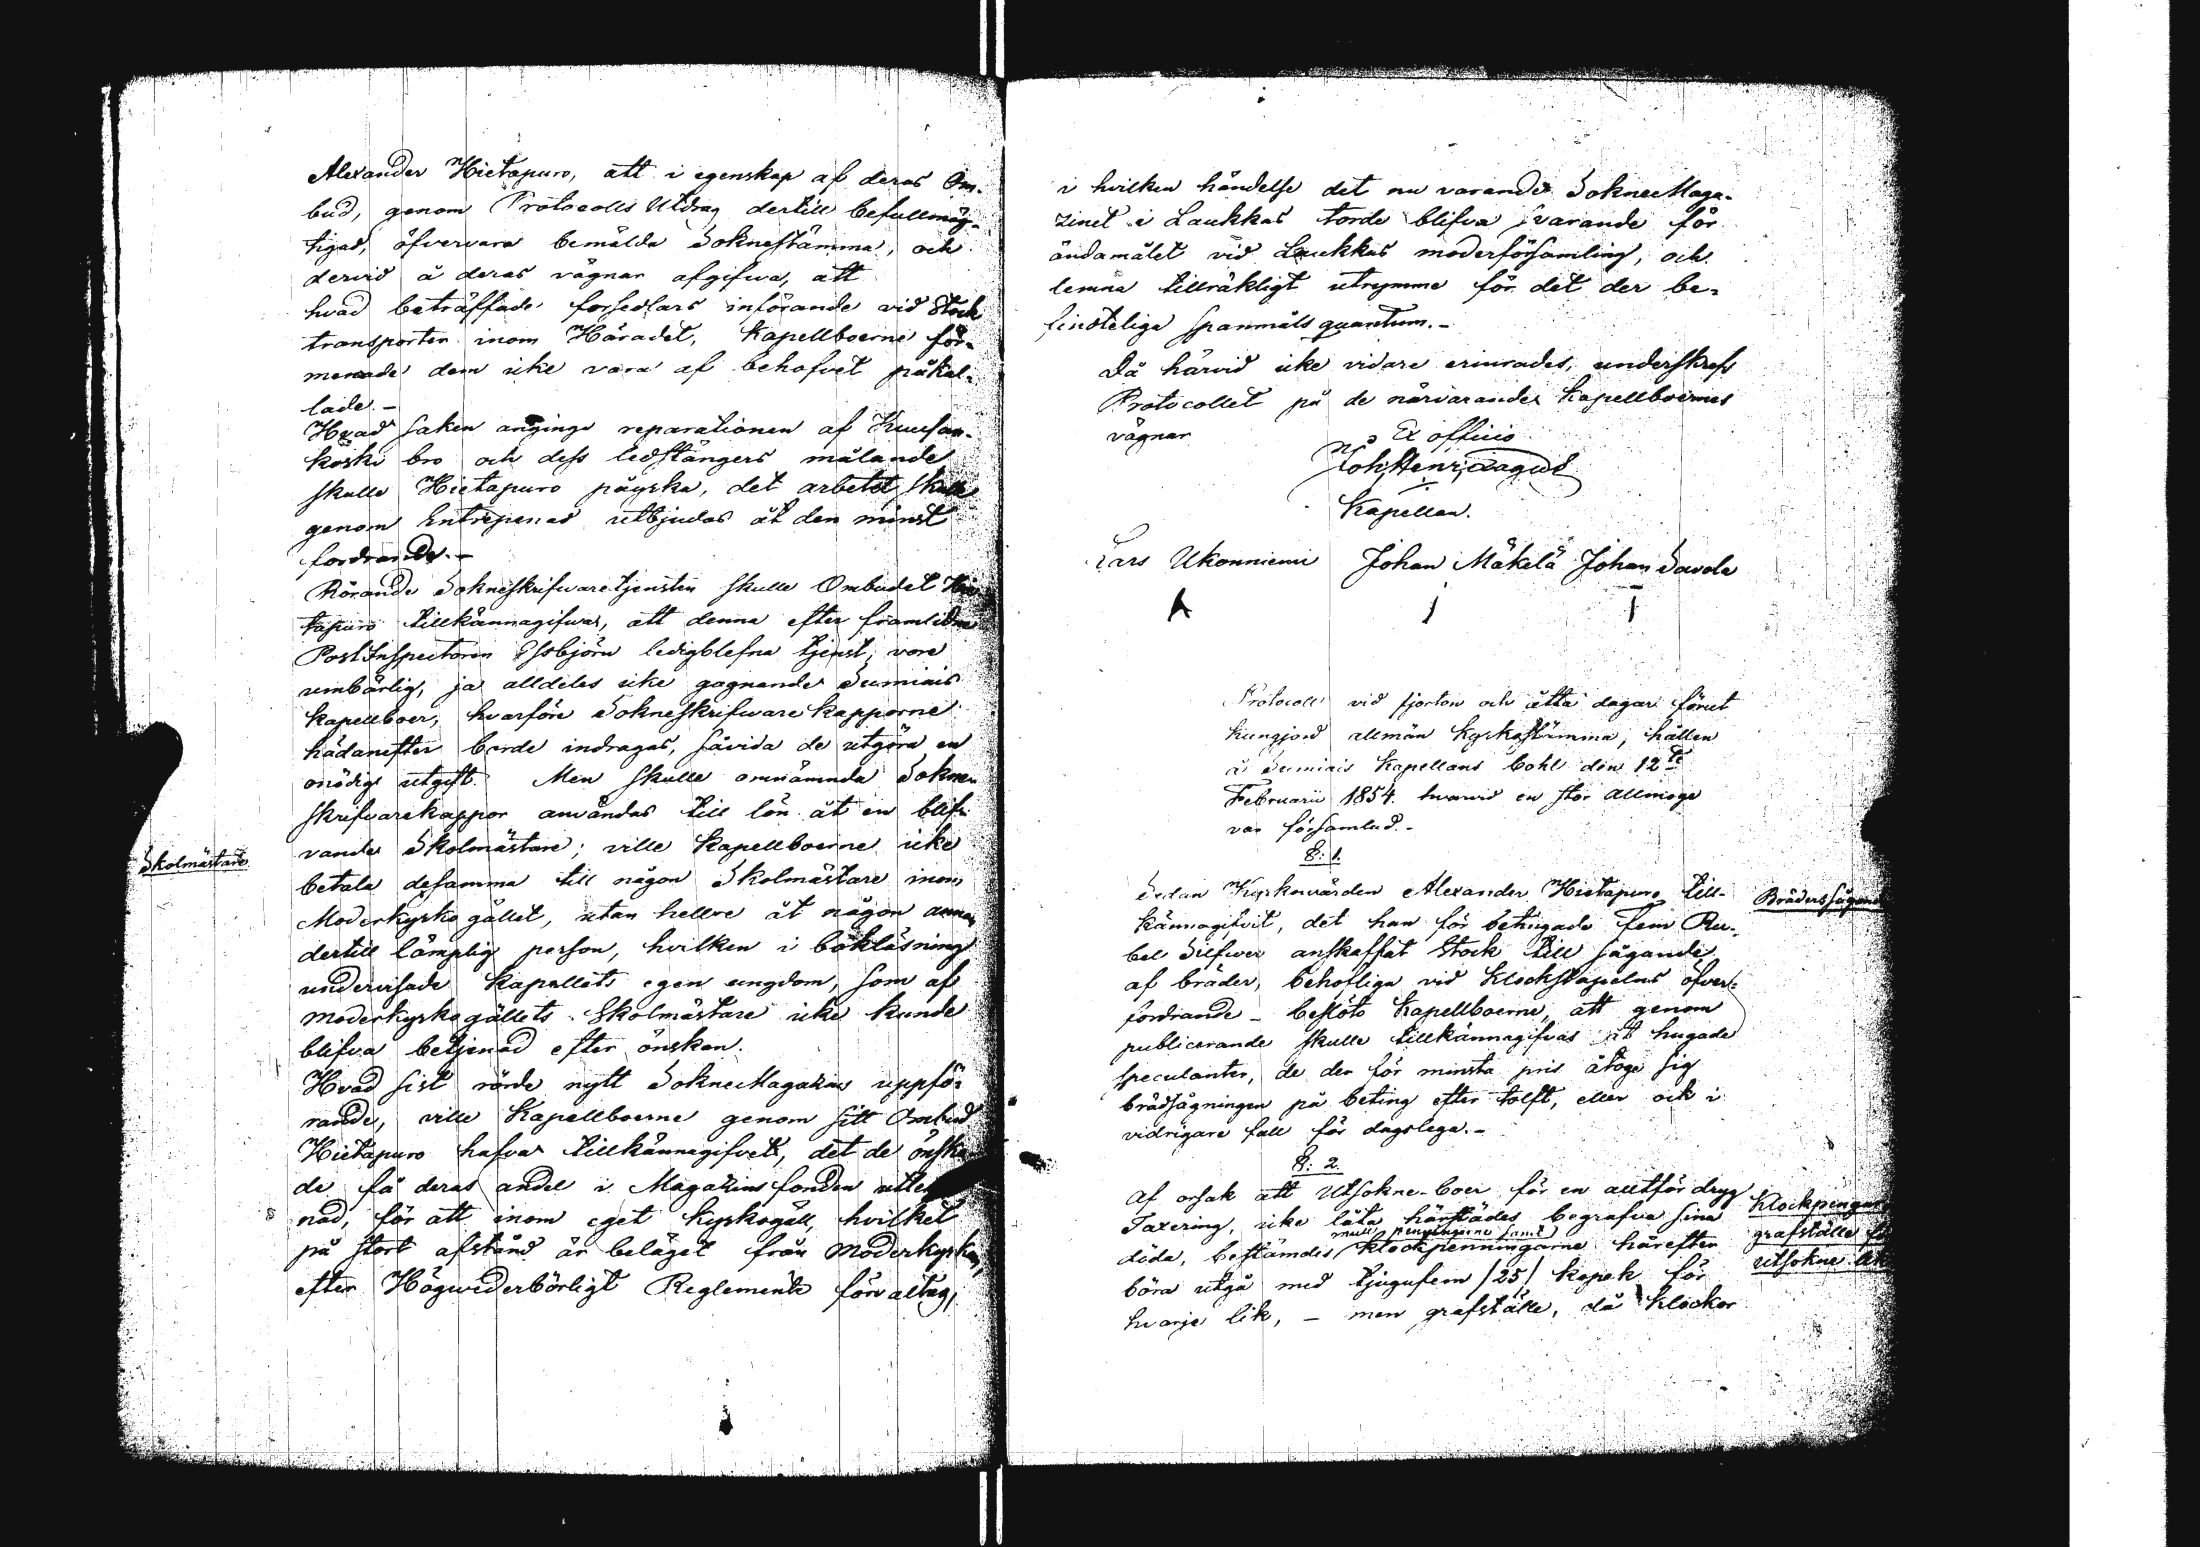 Alexander Hietapuro, att i egenskap af deras Om-
bud, genom Protocolls Utdrag dertill befullmäg-
tigad, öfvervara bemälda Sokneftämma, och
dervid å deras vägnar afgifva, att
hvad beträffade forsedlars införande vid Stock
transporten inom Häradet, Kapellboerne för-
menade dem icke vara af behofvet påkal-
lade. –
Hvad saken anginge reparationen af Kuusan-
koski bro och dess ledstängers målande
skulle Hietapuro påyrka, det arbetet skulle
genom Entrepenad utbjudas åt den minst
fordrande. –
Rörande Sokneskrifvaretjensten skulle Ombudet Hie-
tapuro tillkännagifva, att denna efter framlidne
PostInspectoren Essbjörn ledigblefna tjenst, vore
umbärlig, ja alldeles icke gagnande Sumiais
Kapellboer, hvarföre Sokneskrifvare Kapporne
hädanefter borde indragas, såvida de utgöra en
onödig utgift. Men skulle omnämnda Sokne-
skrifvarekappor användas till lön åt en blif-
vande Skolmästare; ville Kapellboerne icke
Skolmästare
betala desamma till någon Skolmästare inom
Moderkyrkogället, utan hellre åt någon annan
dertill lämplig person, hvilken i bokläsning
undervisade Kapellets egen ungdom, som af
moderkyrkogällets Skolmästare icke kunde
blifva betjenad efter önskan.
Hvad sist rörde nytt SokneMagazins uppfö-
rande, ville Kapellboerne genom sitt Ombud
Hietapuro hafva tillkännagifvet, det de önska-
de få deras andel i Magazins fonden
nad, för att inom eget Kyrkogäll, hvilket
på stort afstånd är beläget från Moderkyrkan,
efter Högvederbörligt Reglemente förvaltas,
i hvilken händelse det nu varande SokneMaga-
zinet i Laukkas torde blifva svarande för
ändamålet vid Laukkas moderförsamling, och
lemna tillräkligt utrymme för det der be-
finteliga spanmåls quantum. –
Då härvid icke vidare erinrades, underskrefs
Protocollet på de närvarande Kapellboernes
vägnar
Ex officio
Joh. Henr.
Kapellan.
Lars Ukonniemi Johan Mäkelä Johan Savola
Protocoll vid fjorton och åtta dagar förut
kungjord allmän Kyrkostämma, hållen
å Sumiais Kapellans bohl den 12te
Februarii 1854. hvarvid en stor allmoge
var församlad. –
§: 1.
Sedan Kyrkovärden Alexander Hietapuro till-
Bräders sågande
kännagifvit, det han för betingade fem Ru-
bel Silfver anskaffat Stock till sågande
af bräder, behofliga vid Klockstapelns öfver-
fordrande – beslöto Kapellboerne, att genom
publicerande skulle tillkännagifvas åt hugade
speculanter, de der för minsta pris åtoge sig
brädsågningen på beting efter tolft, eller ock i
vidrigare fall för dagslega. –
§: 2.
Af orsak att Utsokne-boer för en alltför dryg
Klockpengar
Taxering, icke låta härstädes begrafva sina
mull pengingarne samt
grafställe för
döda, bestämdes klockpenningarne härefter
utsokne lik
böra utgå med tjugufem /25/ kopek för
hvarje lik, – men grafställe, då klockor